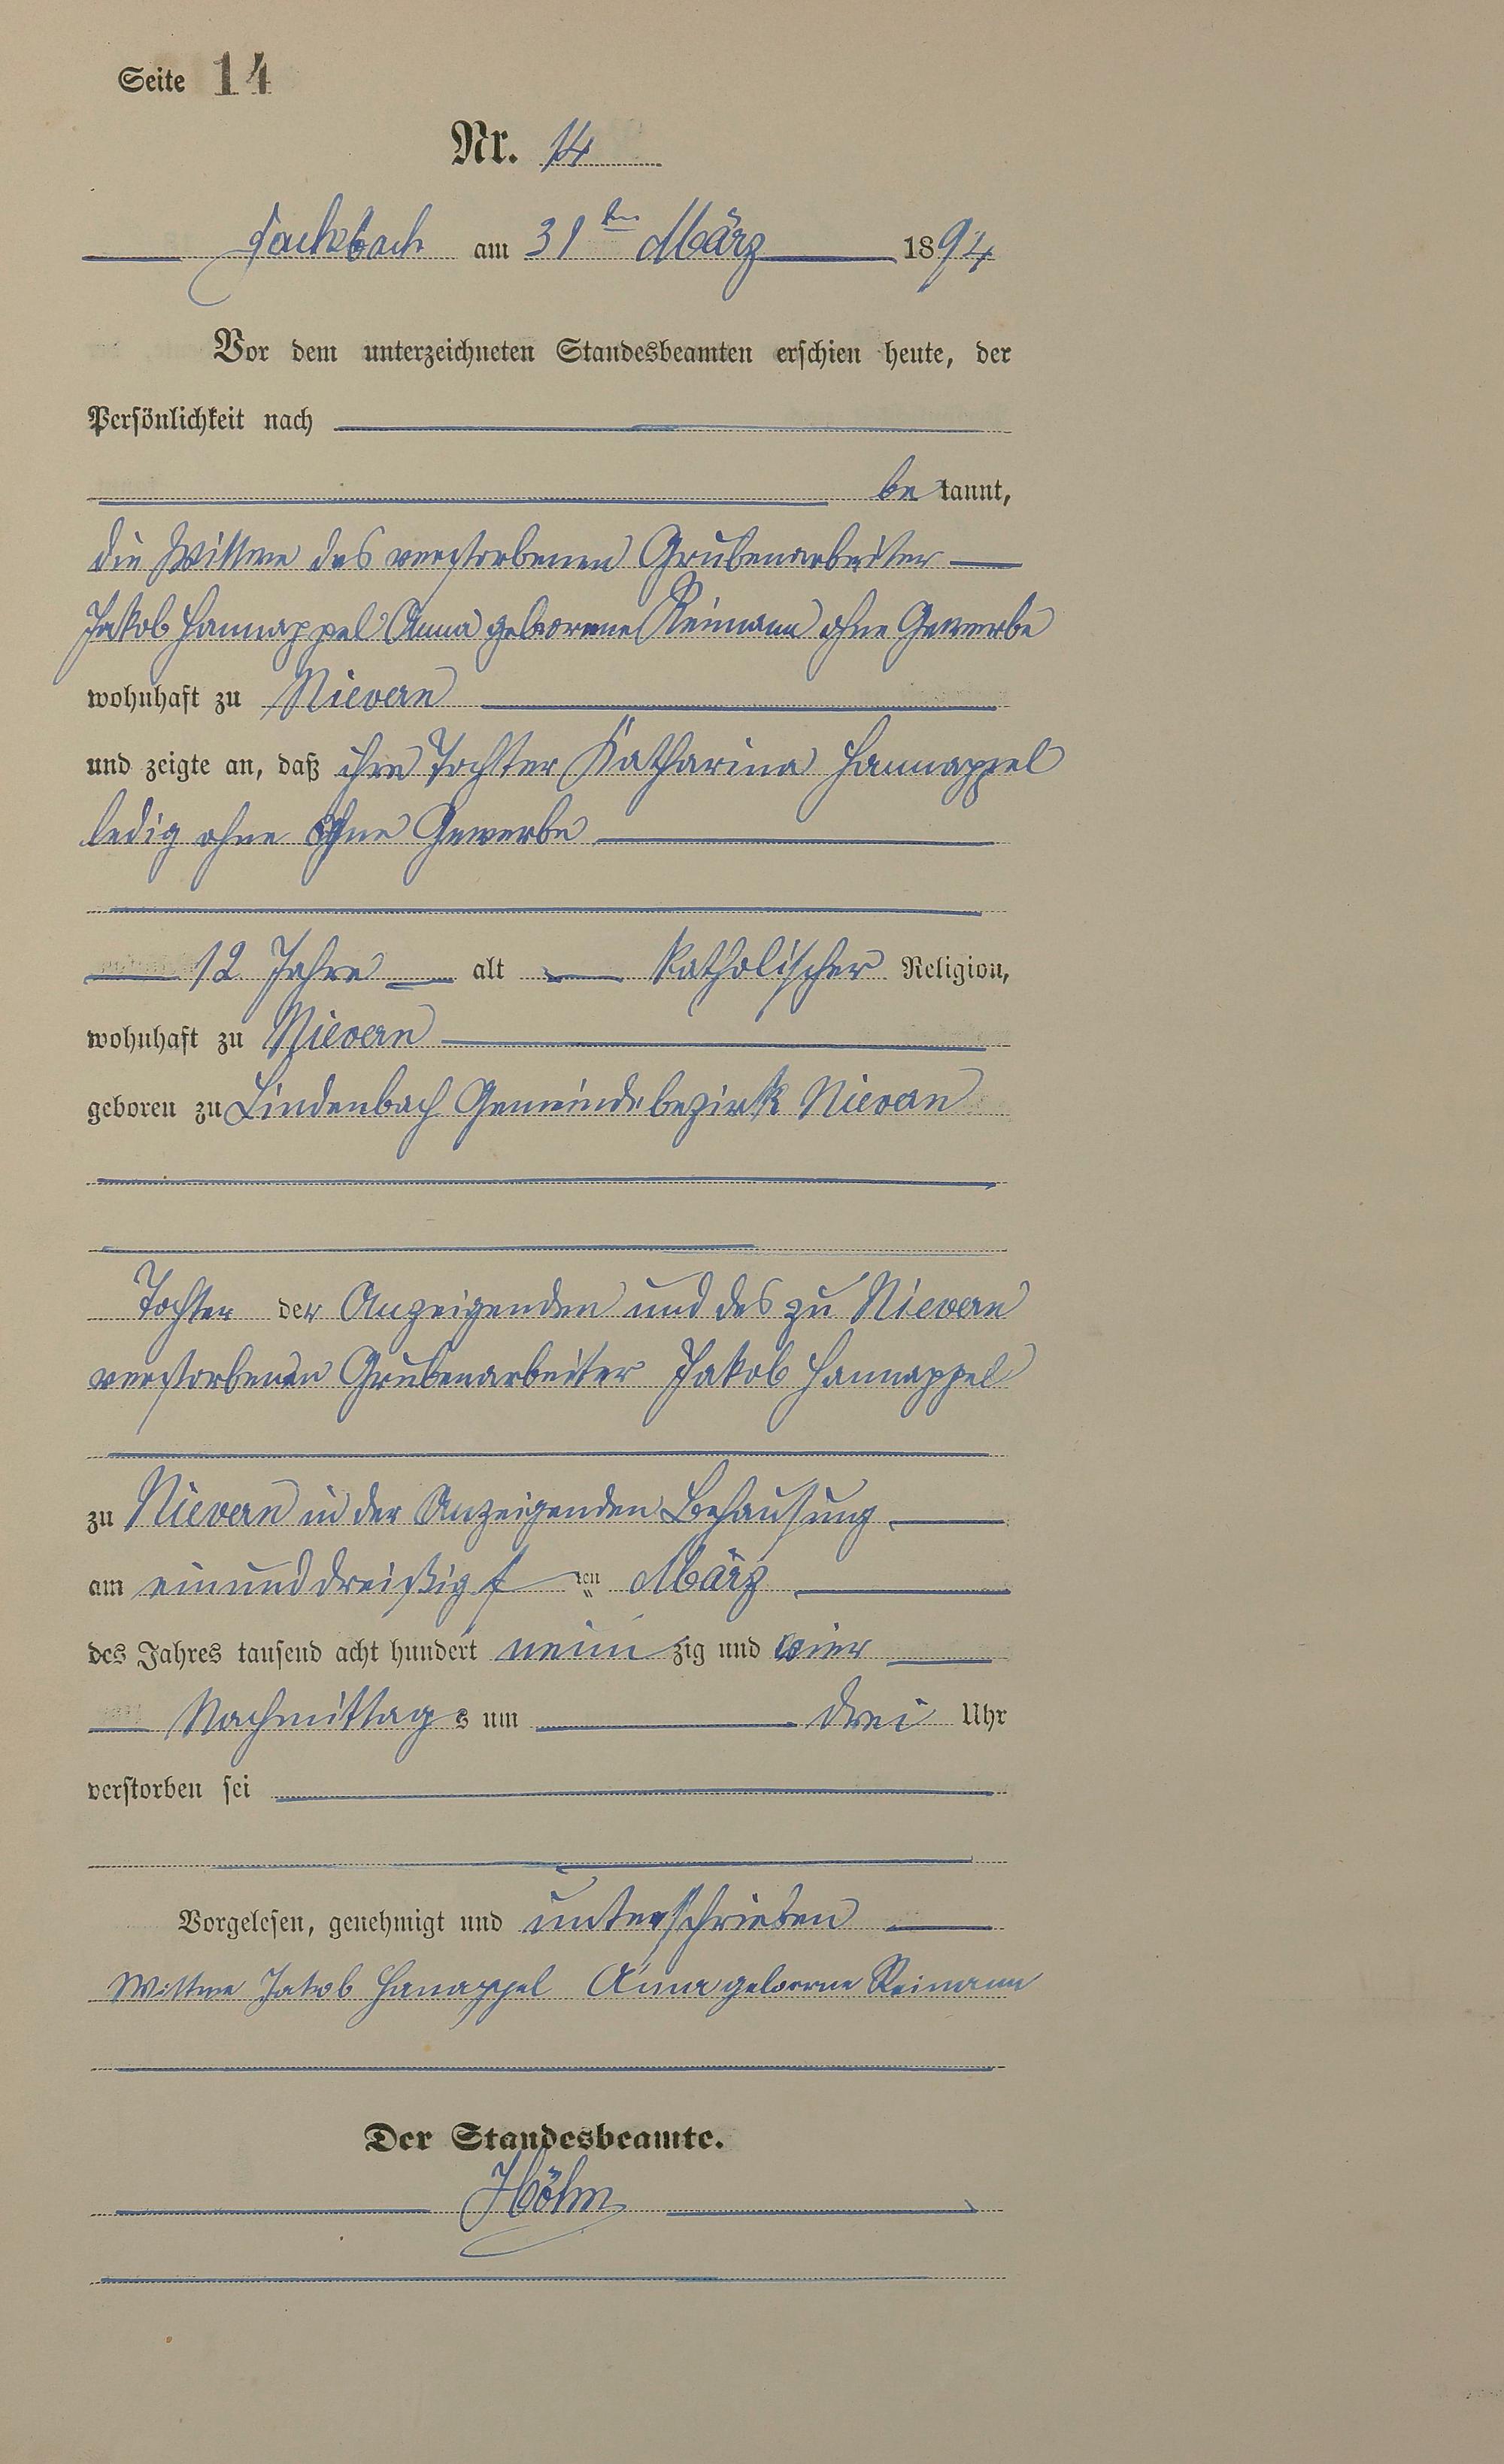 Seite 14
Nr. 14
Fachbach am 31ten März 1894
Vor dem unterzeichneten Standesbeamten erschien heute, der
Persönlichkeit nach
be kannt,
die Wittwe des verstorbenen Grubenarbeiter
Jakob Hannappel Anna geborene Reimann ohne Gewerbe
wohnhaft zu Nievern
und zeigte an, daß ihre Tochter Katharina Hannappel
ledig ohne ohne Gewerbe
12 Jahre alt katholischer Religion,
wohnhaft zu Nievern
geboren zu Lindenbach Gemeindebezirk Nievern
Tochter der Anzeigenden und des zu Nievern
verstorbenen Grubenarbeiter Jakob Hannappel
zu Nievern in der Anzeigenden Behausung
am einunddreißigsten März
des Jahres tausend acht hundert neunzig und vier
Nachmittags um drei Uhr
verstorben sei
Vorgelesen, genehmigt und unterschrieben
Wittwe Jakob Hanappel Anna geborne Reimann
Der Standesbeamte.
Höhn